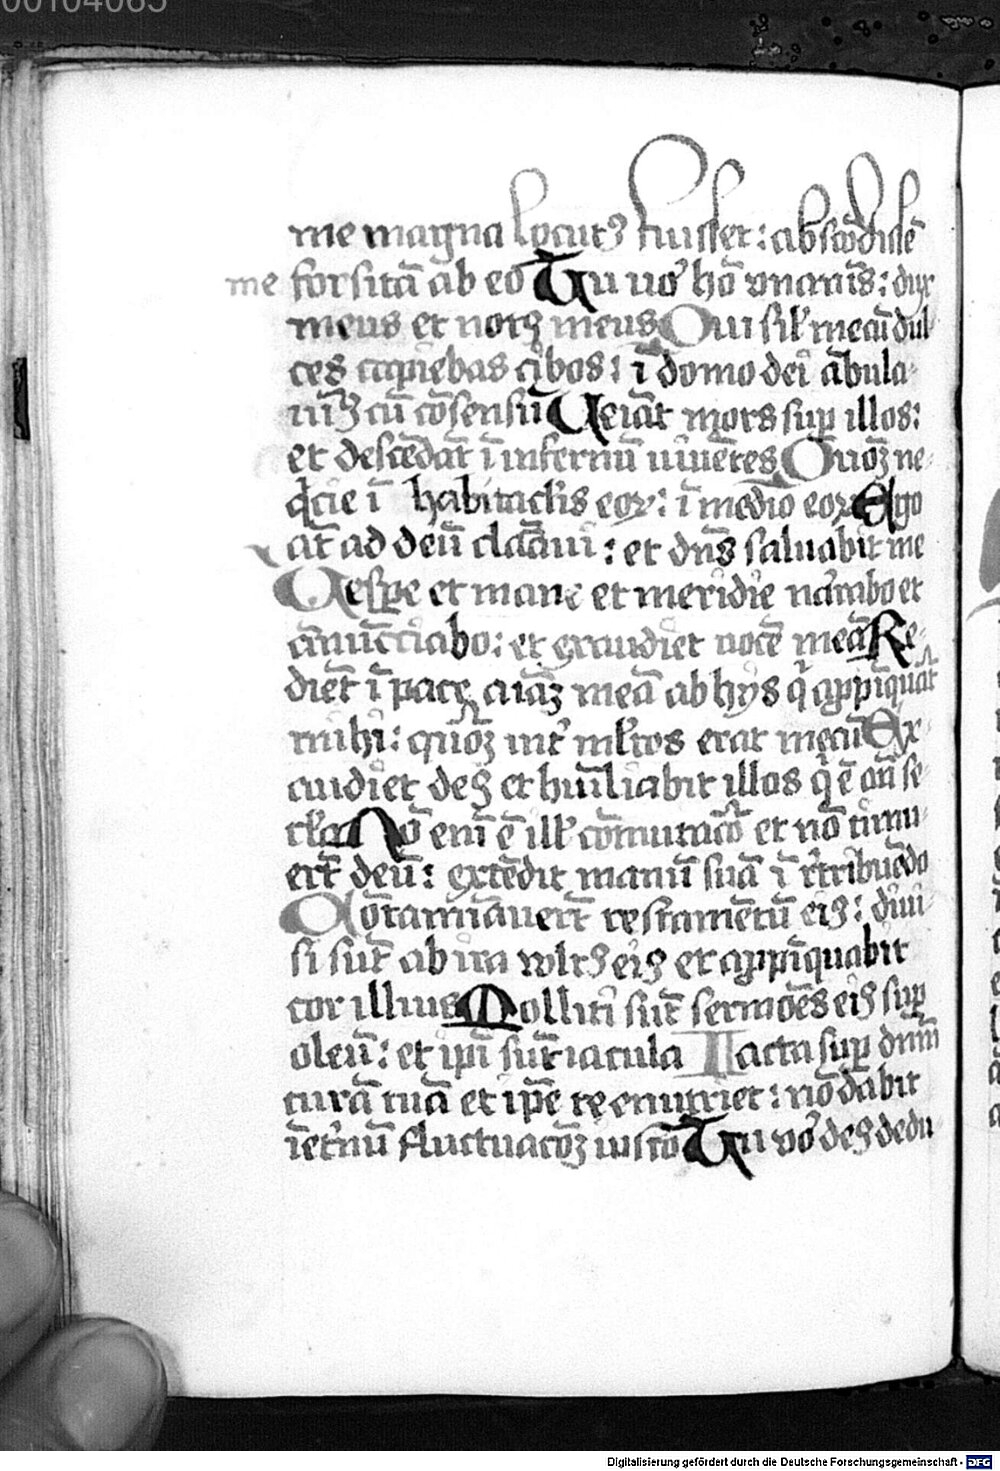 00104065
me magna locutꝰ fuisset: abscōdissē
me forsitā ab eo Tu vo᷒ hō vnanīs: dux
meus et notꝰ meus Qui sil᷒ mecū dul
ces capiebas cibos: ī domo dei ābula-
uīꝰ cū cōsensu Veiāt mors sup illos:
et descēdāt ī infernū viuētes Qūoꝫ ne-
qͥcie ī habitaclis eoꝝ: ī medio eoꝝ Ego
āt ad deū clamaui: et dn̄s saluabit me
Vespe et mane et meridie narrabo et
ānūcciabo: et exaudiet vocē meā Re-
diet ī pace aiāꝫ meā ab hys qͥ appīquāt
mihi: qūoꝫ int᷒ ml᷒tos erat mecū Ex-
audiet deꝰ et hūiliabit illos qͥ ē an̄ se-
cl᷒a Nō enī ē ill᷒ cōmutacō et nō timu-
ert̄ deū: extēdit manū suā ī r᷒tribuēdo
Cōtaminauert̄ testamētū eiꝰ: diui-
si sūt ab ira vultꝰ eiꝰ et appīquabit
cor illius Molliti sūt sermōes eiꝰ sup
oleū: et ipi sūt iacula Iacta sup dnm̄
curā tuā et ipē te enutriet: nō dabit
īet᷒nū fluctuacōꝫ iusto Tu vo᷒ deꝰ dedu
Digitalisierung gefördert durch die Deutsche Forschungsgemeinschaft - DFG